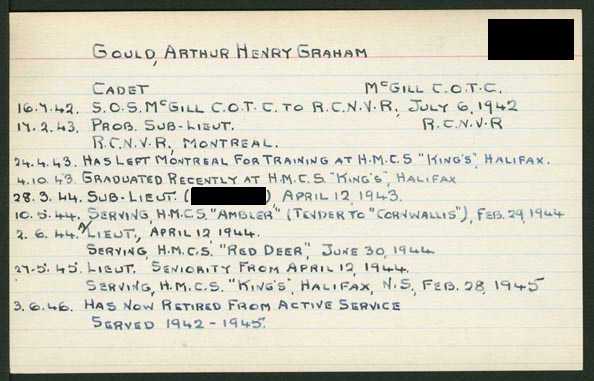 GOULD, ARTHUR HENRY GRAHAM
CADET McGILL C.O.T.C.
16.7.42. S.O.S. McGILL C.O.T.C. TO R.C.N.V.R., JULY 6, 1942
17.2.43. PROB. SUB-LIEUT. R.C.N.V.R
R.C.N.V.R, MONTREAL.
24.4.43. HAS LEFT MONTREAL FOR TRAINING AT H.M.C.S "KING'S", HALIFAX.
4.10.43. GRADUATED RECENTLY AT H.M.C.S. "KING'S", HALIFAX
28.3.44. SUB-LIEUT. ( ), APRIL 12, 1943.
10.5.44. SERVING, H.M.C.S. "AMBLER" (TENDER TO "CORNWALLIS"), FEB. 29, 1944
2.6.44. A/LIEUT., APRIL 12, 1944.
SERVING, H.M.C.S. "RED DEER", JUNE 30, 1944
27.5.45. LIEUT. SENIORITY FROM APRIL 12, 1944.
SERVING, H.M.C.S. "KING'S", HALIFAX, N.S, FEB. 28, 1945
3.6.46. HAS NOW RETIRED FROM ACTIVE SERVICE
SERVED 1942-1945.